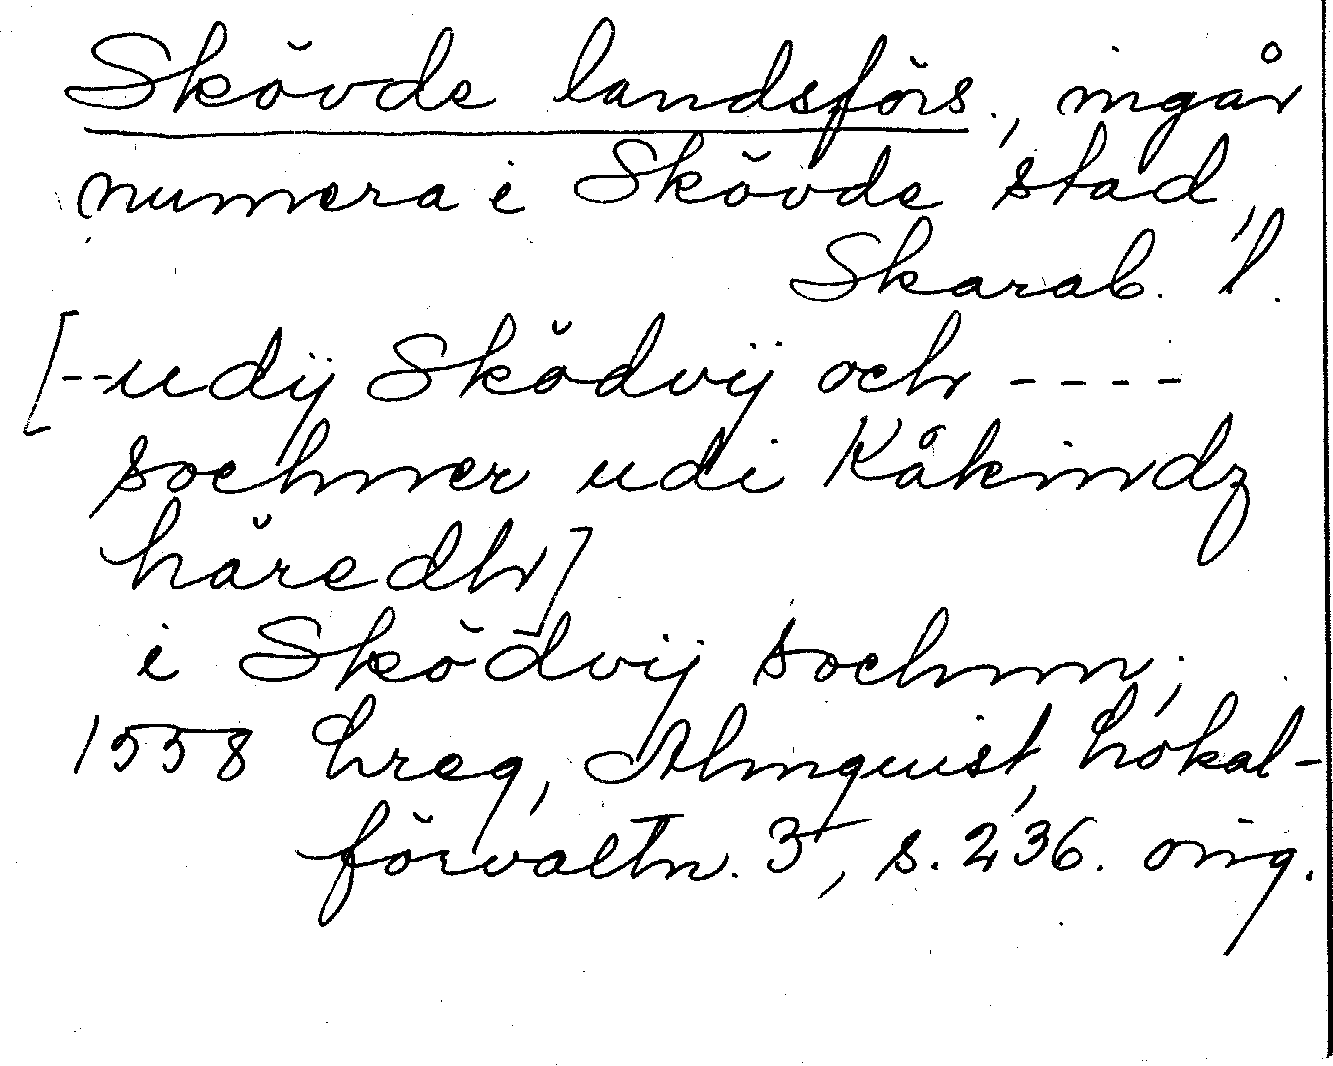 Skövde landsförs., ingår
numera i Skövde stad,
Skarab. l.
[--udij Sködvij och ----
sochner udi Kåkindz
häredh]
i Sködvij sochnn,
1558 Lreg, Almquist, Lokal-
förvaltn. 3, s. 236. oing.